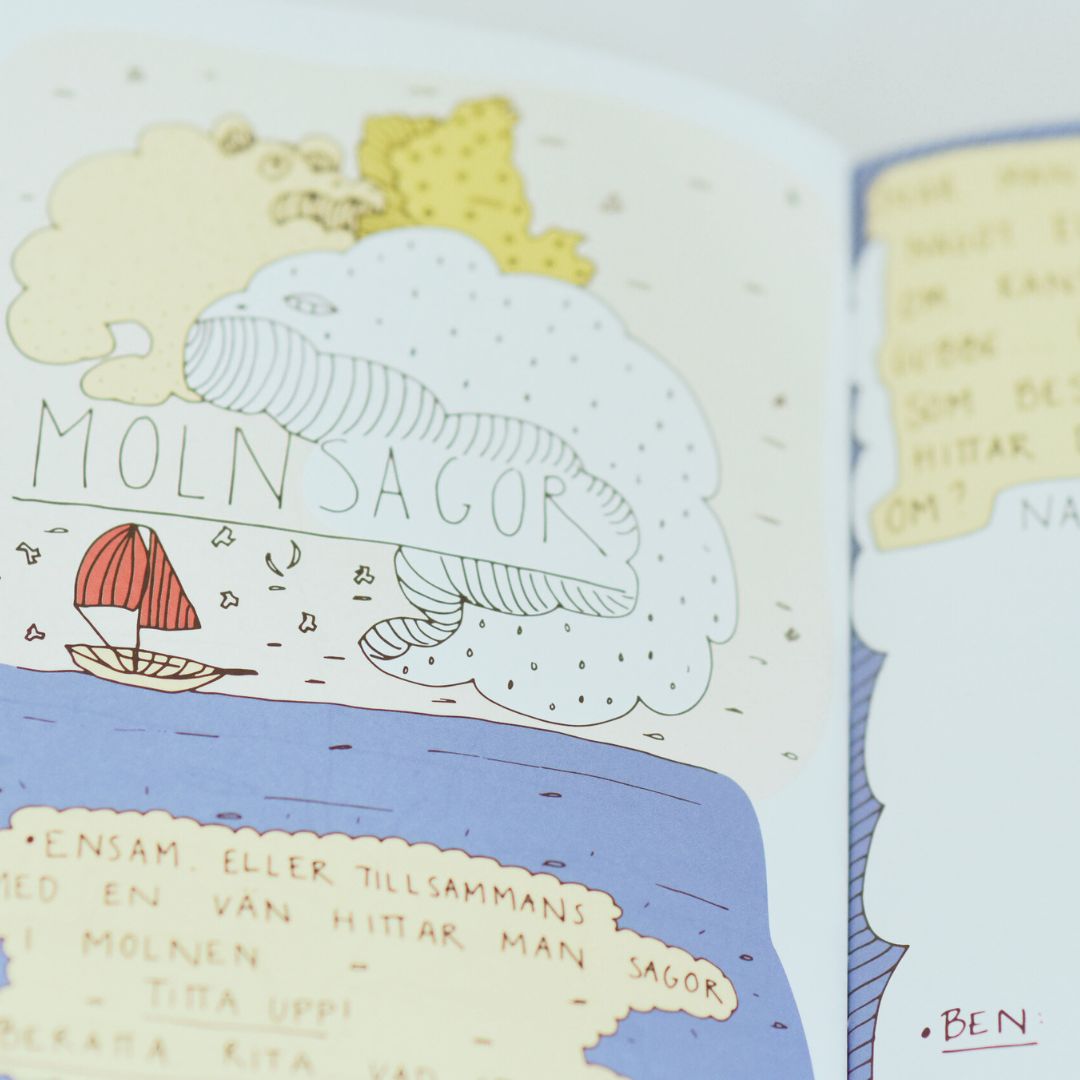 MOLNSAGOR
• ENSAM. ELLER TILLSAMMANS
MED EN VÄN HITTAR MAN SAGOR
I MOLNEN
TITTA UPP!
BERÄTTA RITA VAD
MAN
NÅGOT
SOM BES
HITTAR
OM?
NA
• BEN: